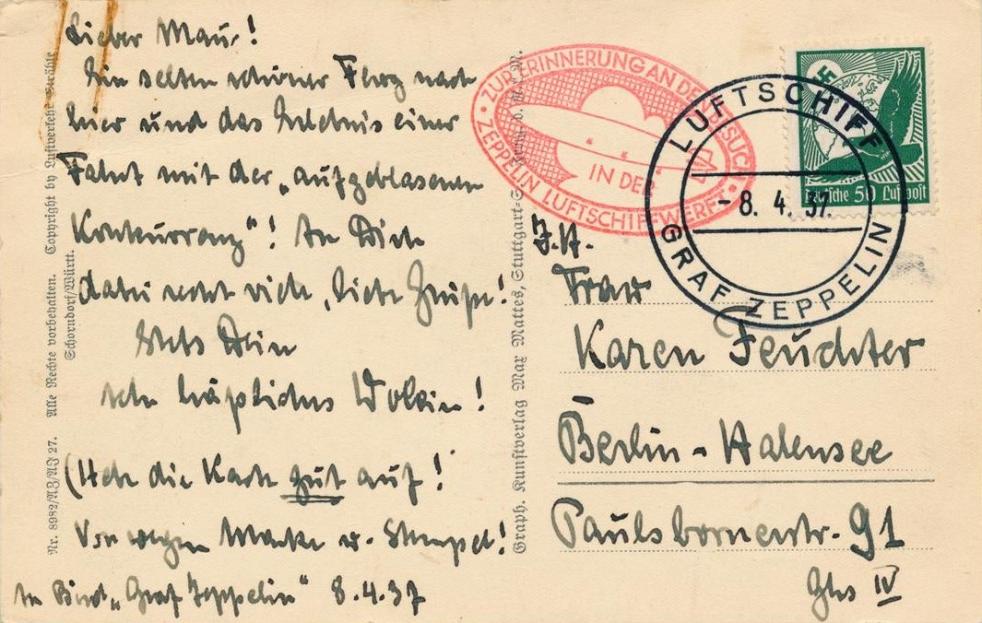 Lieber Maus!
Ein selten schöner Flug nach
hier und das Erlebnis einer
Fahrt mit der „aufgeblasenen
Konkurrenz"! An Dich
dabei recht viele, liebe Grüße!
Stets Dein
sehr häßliches
(Hebe die Karte gut auf!
Von wegen Marke u. Stempel!
An Bord „Graf Zeppelin" 8.4.37
Nr. 8982/NZ/NZ 27. Alle Rechte vorbehalten. Copyright by Luftverkehr Strähle
Schorndorf/Württ.
Graph. Kunstverlag Max Mattes, Stuttgart-S
ZUR ERINNERUNG AN DEN BESUCH
IN DER
ZEPPELIN LUFTSCHIFFWERFT
LUFTSCHIFF
- 8. 4. 37.
GRAF ZEPPELIN
Deutsche 50 Luftpost
Frau
Karen Feuchter
Berlin - Halensee
Paulsbornerstr. 91
Ghs IV